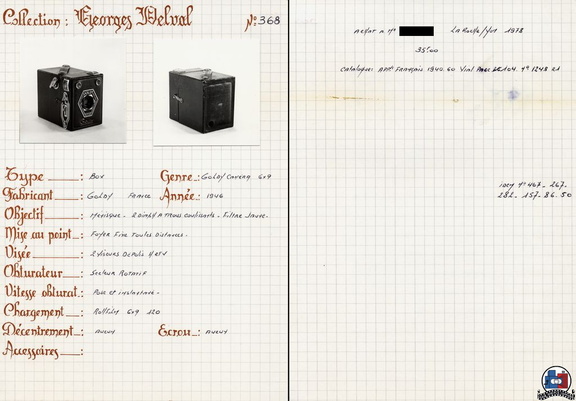 Collection : Georges Delval Nº 368
Type : Box Genre : Goldy Cavena 6x9
Fabricant : Goldy France Année : 1946
Objectif : Menisque - 2 Diaph A trous coulissants - Filtre Jaune.
Mise au point : Foyer Fixe Toutes Distances.
Visée : 2 Viseurs Depolis H et V
Obturateur : Secteur Rotatif
Vitesse obturat. : Pose et instantané.
Chargement : Rollfilm 6x9 120
Décentrement : aucun Ecrou : aucun
Accessoires :
Achat a Mr La Roche/Yon 1978
35.00
Catalogues APP. Français 1940.60 Vial Nº 1248
idem Nº 467 - 267.
282 - 157 - 86. 50